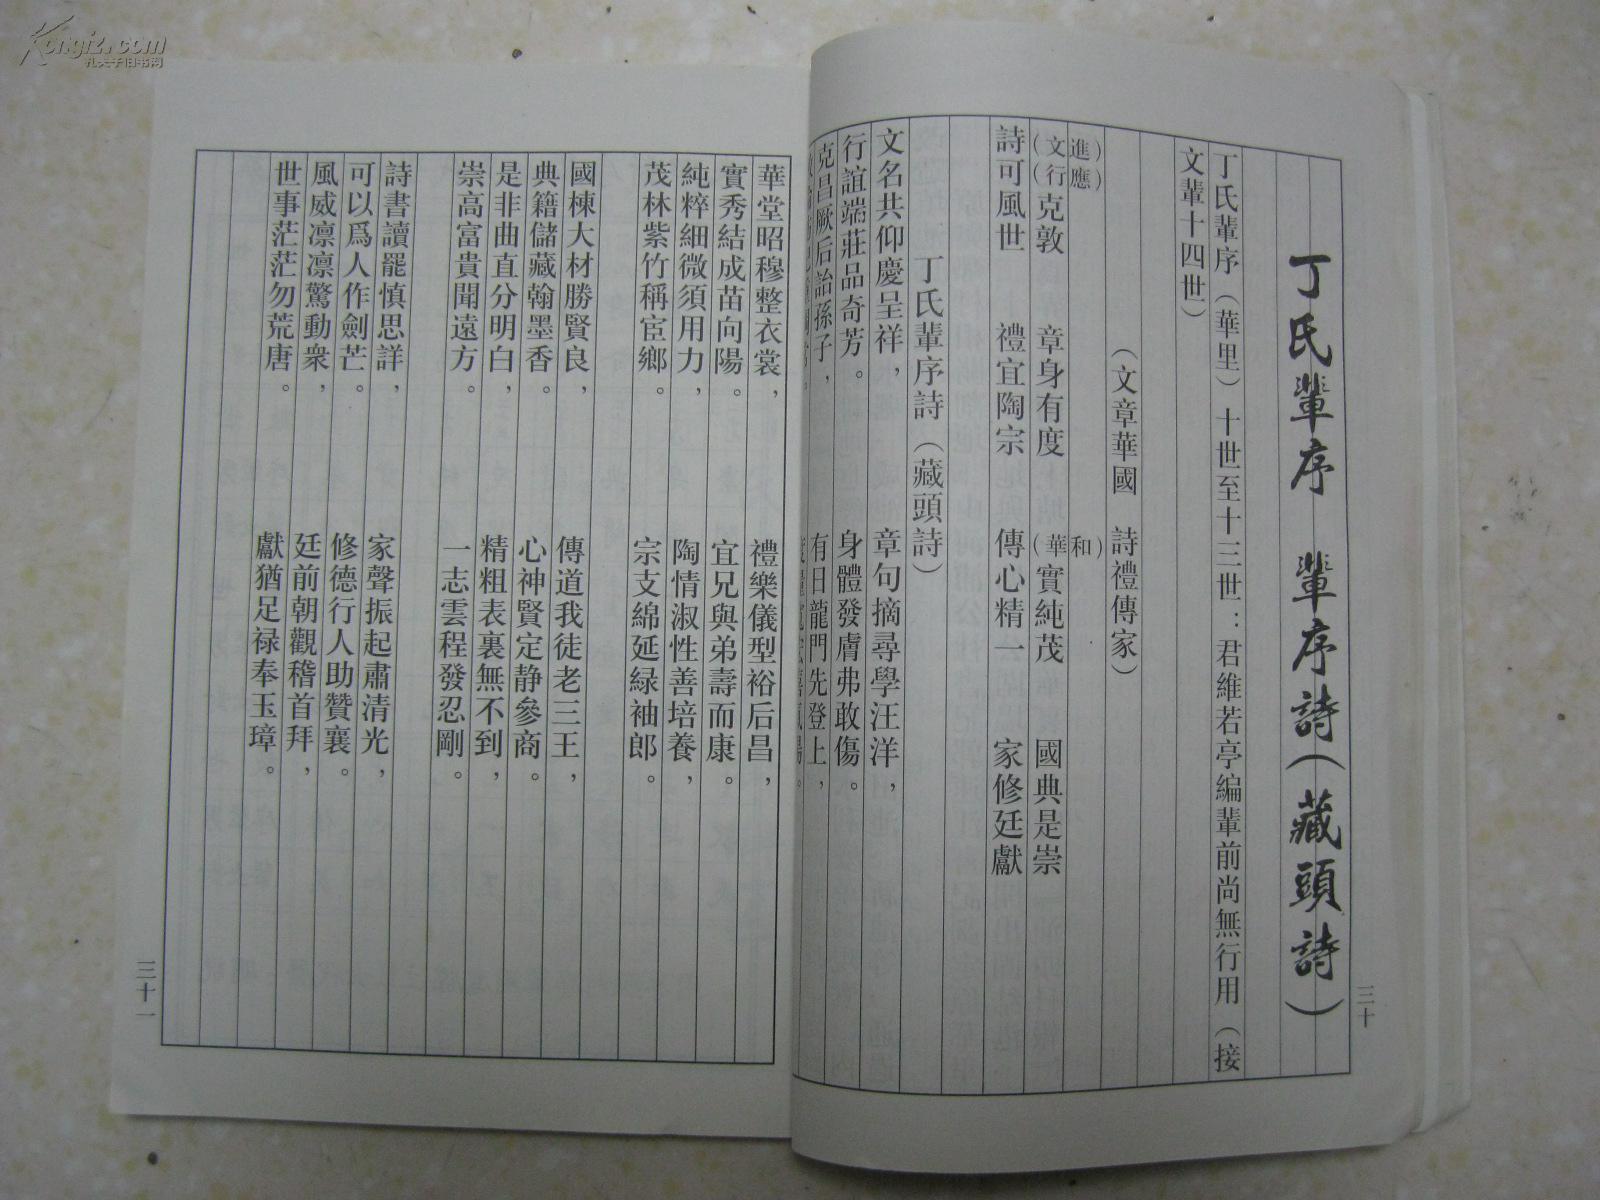 丁氏輩序　輩序詩（藏頭詩）
三十
丁氏輩序（華里）十世至十三世：君維若亭編輩前尚無行用（接
文輩十四世）
（文章華國　詩禮傳家）
進）應）　和）
（文（行克敦　章身有度　（華實純茂　國典是崇
詩可風世　禮宜陶宗　傳心精一　家修廷獻
丁氏輩序詩（藏頭詩）
文名共仰慶呈祥，　章句摘尋學汪洋，
行誼端莊品奇芳。　身體發膚弗敢傷。
克昌厥后詒孫子，　有日龍門先登上，
華堂昭穆整衣裳，　禮樂儀型裕后昌，
實秀結成苗向陽。　宜兄與弟壽而康。
純粹細微須用力，　陶情淑性善培養，
茂林紫竹稱宦鄉。　宗支綿延緑袖郎。
國棟大材勝賢良，　傳道我徒老三王，
典籍儲藏翰墨香。　心神賢定静參商。
是非曲直分明白，　精粗表裏無不到，
崇高富貴聞遠方。　一志雲程發忍剛。
詩書讀罷慎思詳，　家聲振起肅清光，
可以爲人作劍芒。　修德行人助贊襄。
風威凛凛驚動衆，　廷前朝觀稽首拜，
世事茫茫勿荒唐。　獻猶足禄奉玉璋。
三十一
Kongfz.com
孔夫子旧书网